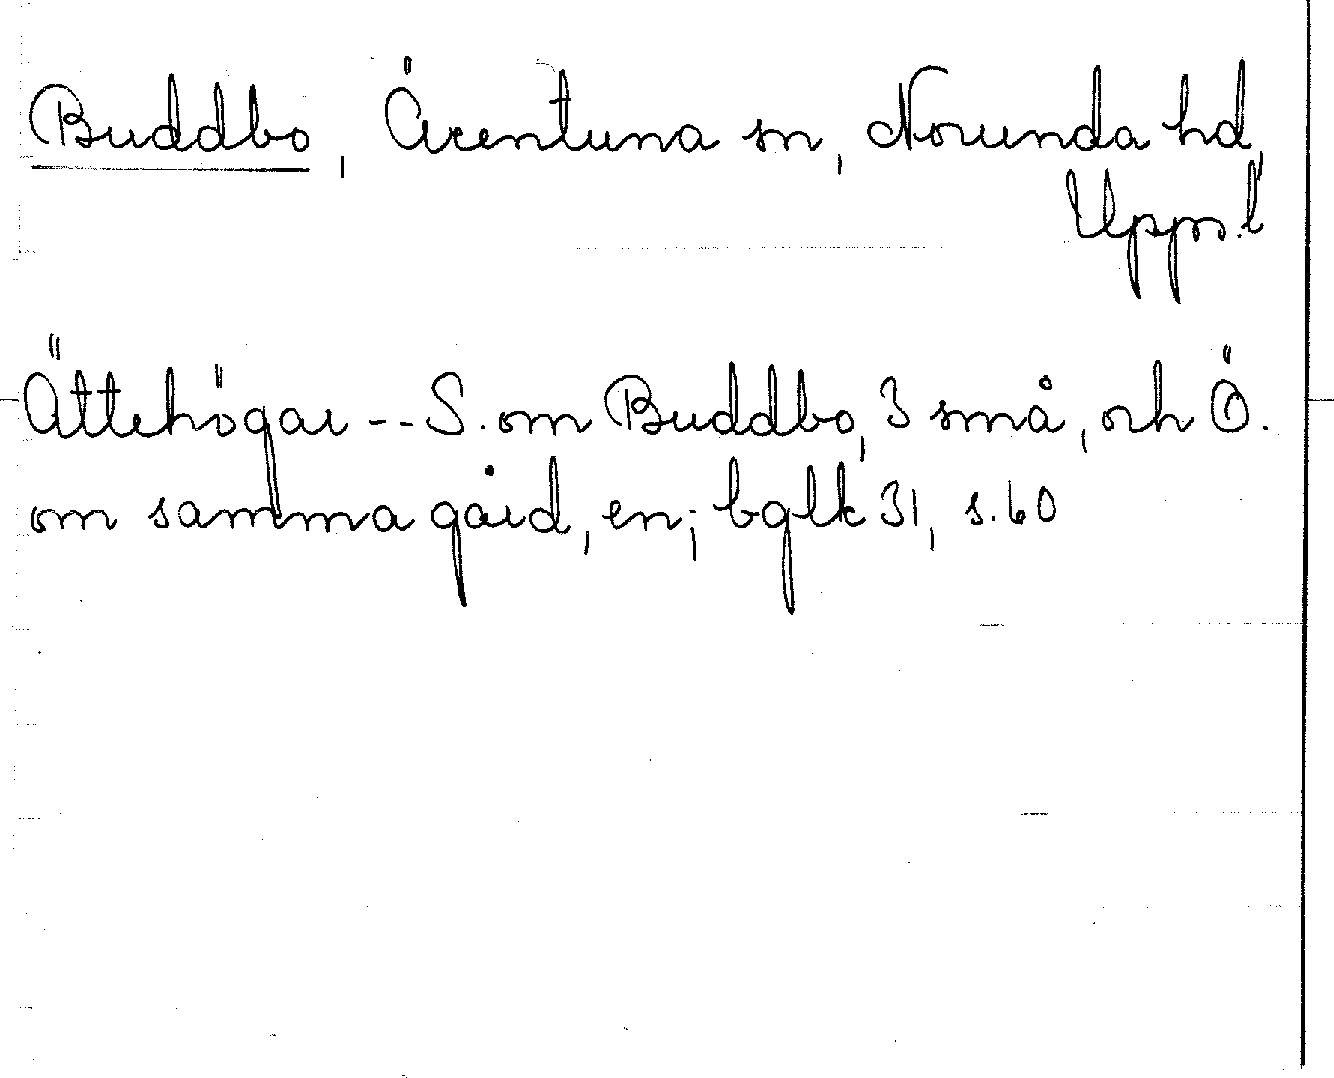 Buddbo, Ärentuna sn, Norunda hd,
Upps. l
Ättehögar -- S. om Buddbo, 3 små, och Ö.
om samma gård, en; bglk 31, s. 60